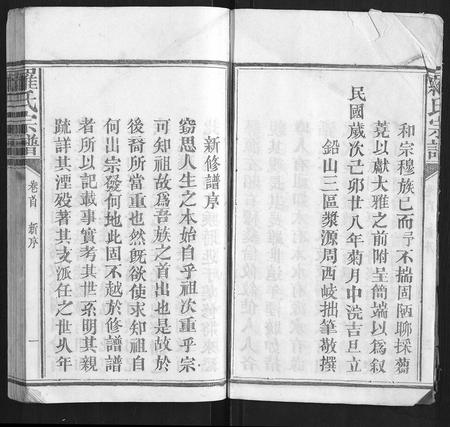 羅氏宗譜
和宗穆族已而予不揣固陋聊採蒭
蕘以獻大雅之前附呈簡端以爲叙
民國歲次己卯廿八年菊月中浣吉旦立
鉛山三區漿源周西岐拙筆敬撰
新修譜序
竊思人生之本始自乎祖次重乎宗
可知祖故爲吾族之首出也是故於
後裔所當重也然旣欲使求知祖自
何出宗發何地此固不越於修譜譜
者所以記載事實考其世系明其親
疏詳其湮歿著其支派任之世乆年
羅氏宗譜
卷首 新序 一